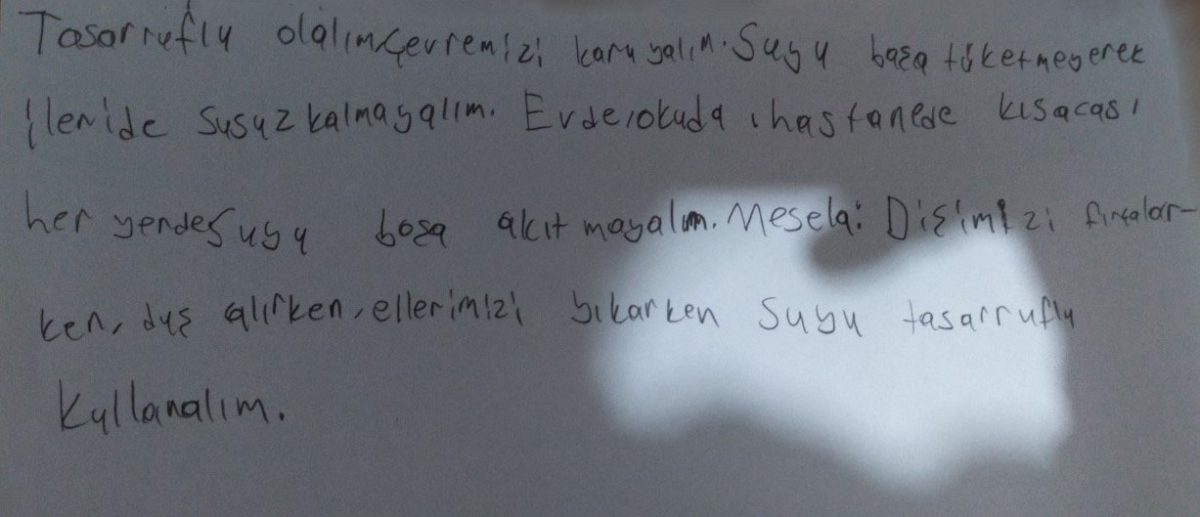 Tasarruflu olalım çevremizi koruyalım. Suyu boşa tüketmeyerek
ileride susuz kalmayalım. Evde, okuda, hastanede kısacası
her yerde suyu boşa akıtmayalım. Mesela: Dişimizi fırçalar-
ken, duş alırken, ellerimizi yıkarken suyu tasarruflu
kullanalım.